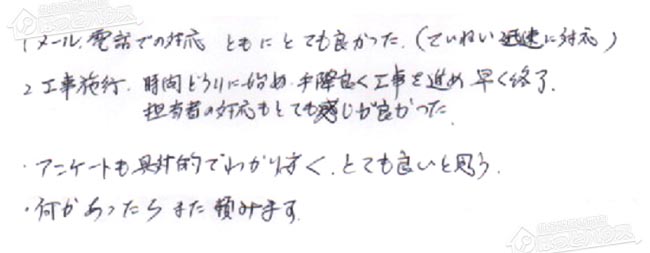 1 メール、電話での対応 ともにとても良かった。(ていねい 迅速に対応)
2 工事施行. 時間どうりに始め、手際良く工事を進め 早く終了.
担当者の対応もとても感じが良かった
・アンケートも具体的でわかり方く、とても良いと思う.
・何かあったら また 頼みます.